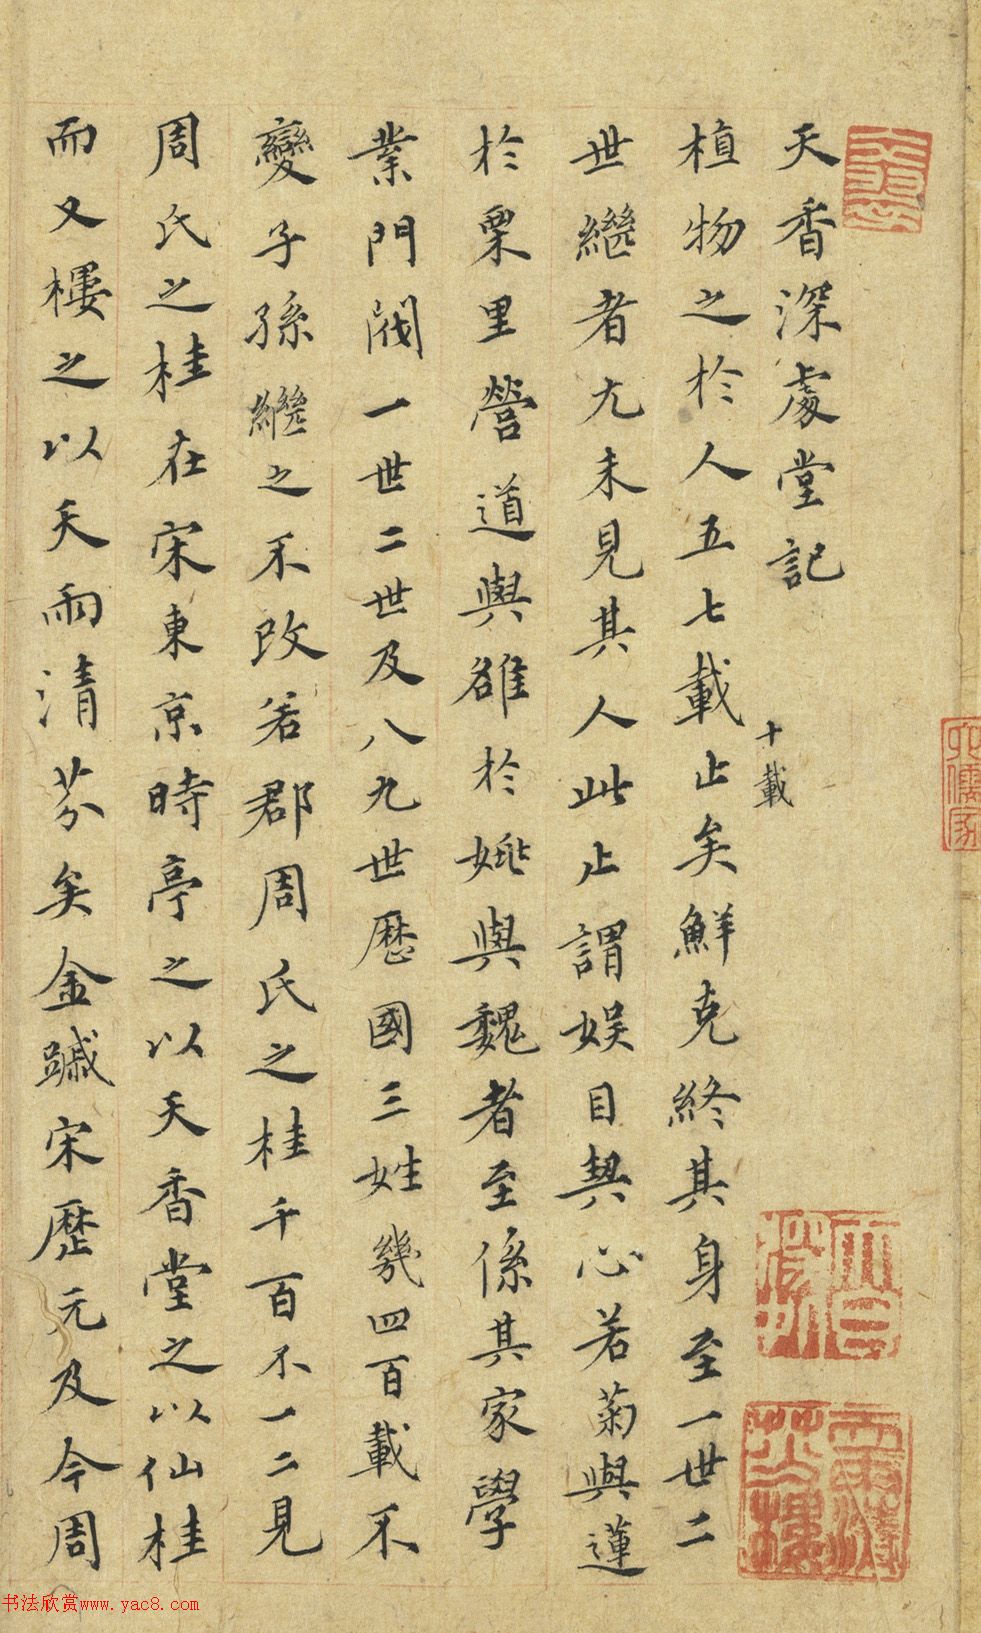 天香深處堂記
植物之於人五七載止矣鮮克終其身至一世二
十載
世繼者尤未見其人此止謂娱目契心若菊與蓮
於栗里營道與雒於姚與魏者至係其家學
業門閥一世二世及八九世歷國三姓幾四百載不
變子孫繼之不改若郡周氏之桂千百不一二見
周氏之桂在宋東京時亭之以天香堂之以仙桂
而又樓之以天雨清芬矣金踰宋歷元及今周
天雨清芬樓
六儒家
书法欣赏www.yac8.com